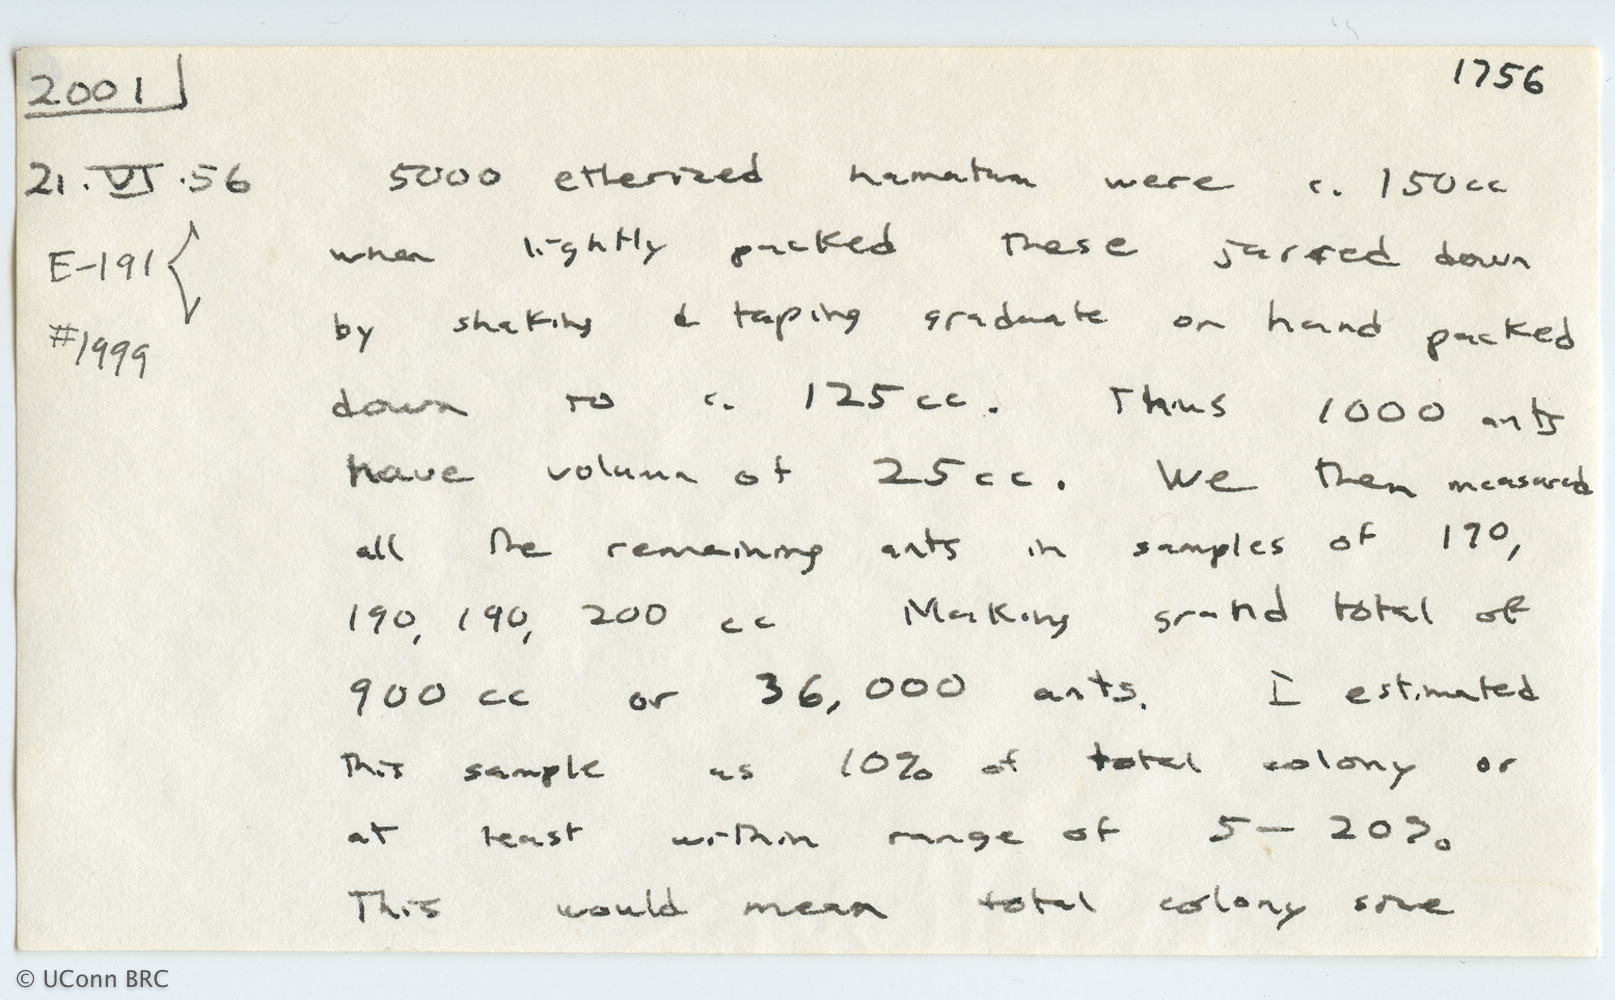 2001 1756
21.VI.56 5000 etherized hamatum were c. 150cc
E-191 when lightly packed these jarred down
by shaking & taping graduate on hand packed
#1999
down to c. 125cc. Thus 1000 ants
have volum of 25cc. We then measured
all the remaining ants in samples of 170,
190, 190, 200 cc Making grand total of
900 cc or 36,000 ants. I estimated
This sample as 10% of total colony or
at least within range of 5-20%
This would mean total colony size
© UConn BRC